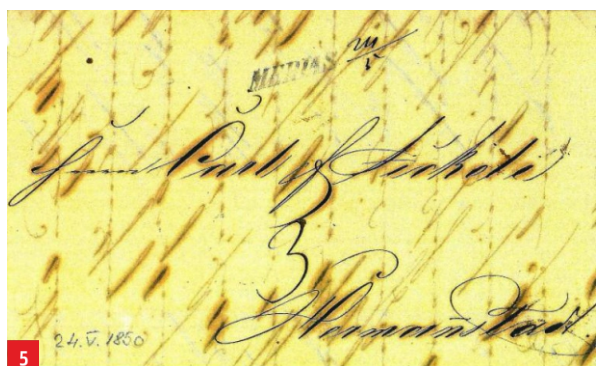 MEDIAS
Herrn Carl F Jickeli
3
Hermannstadt
24.V.1850
5